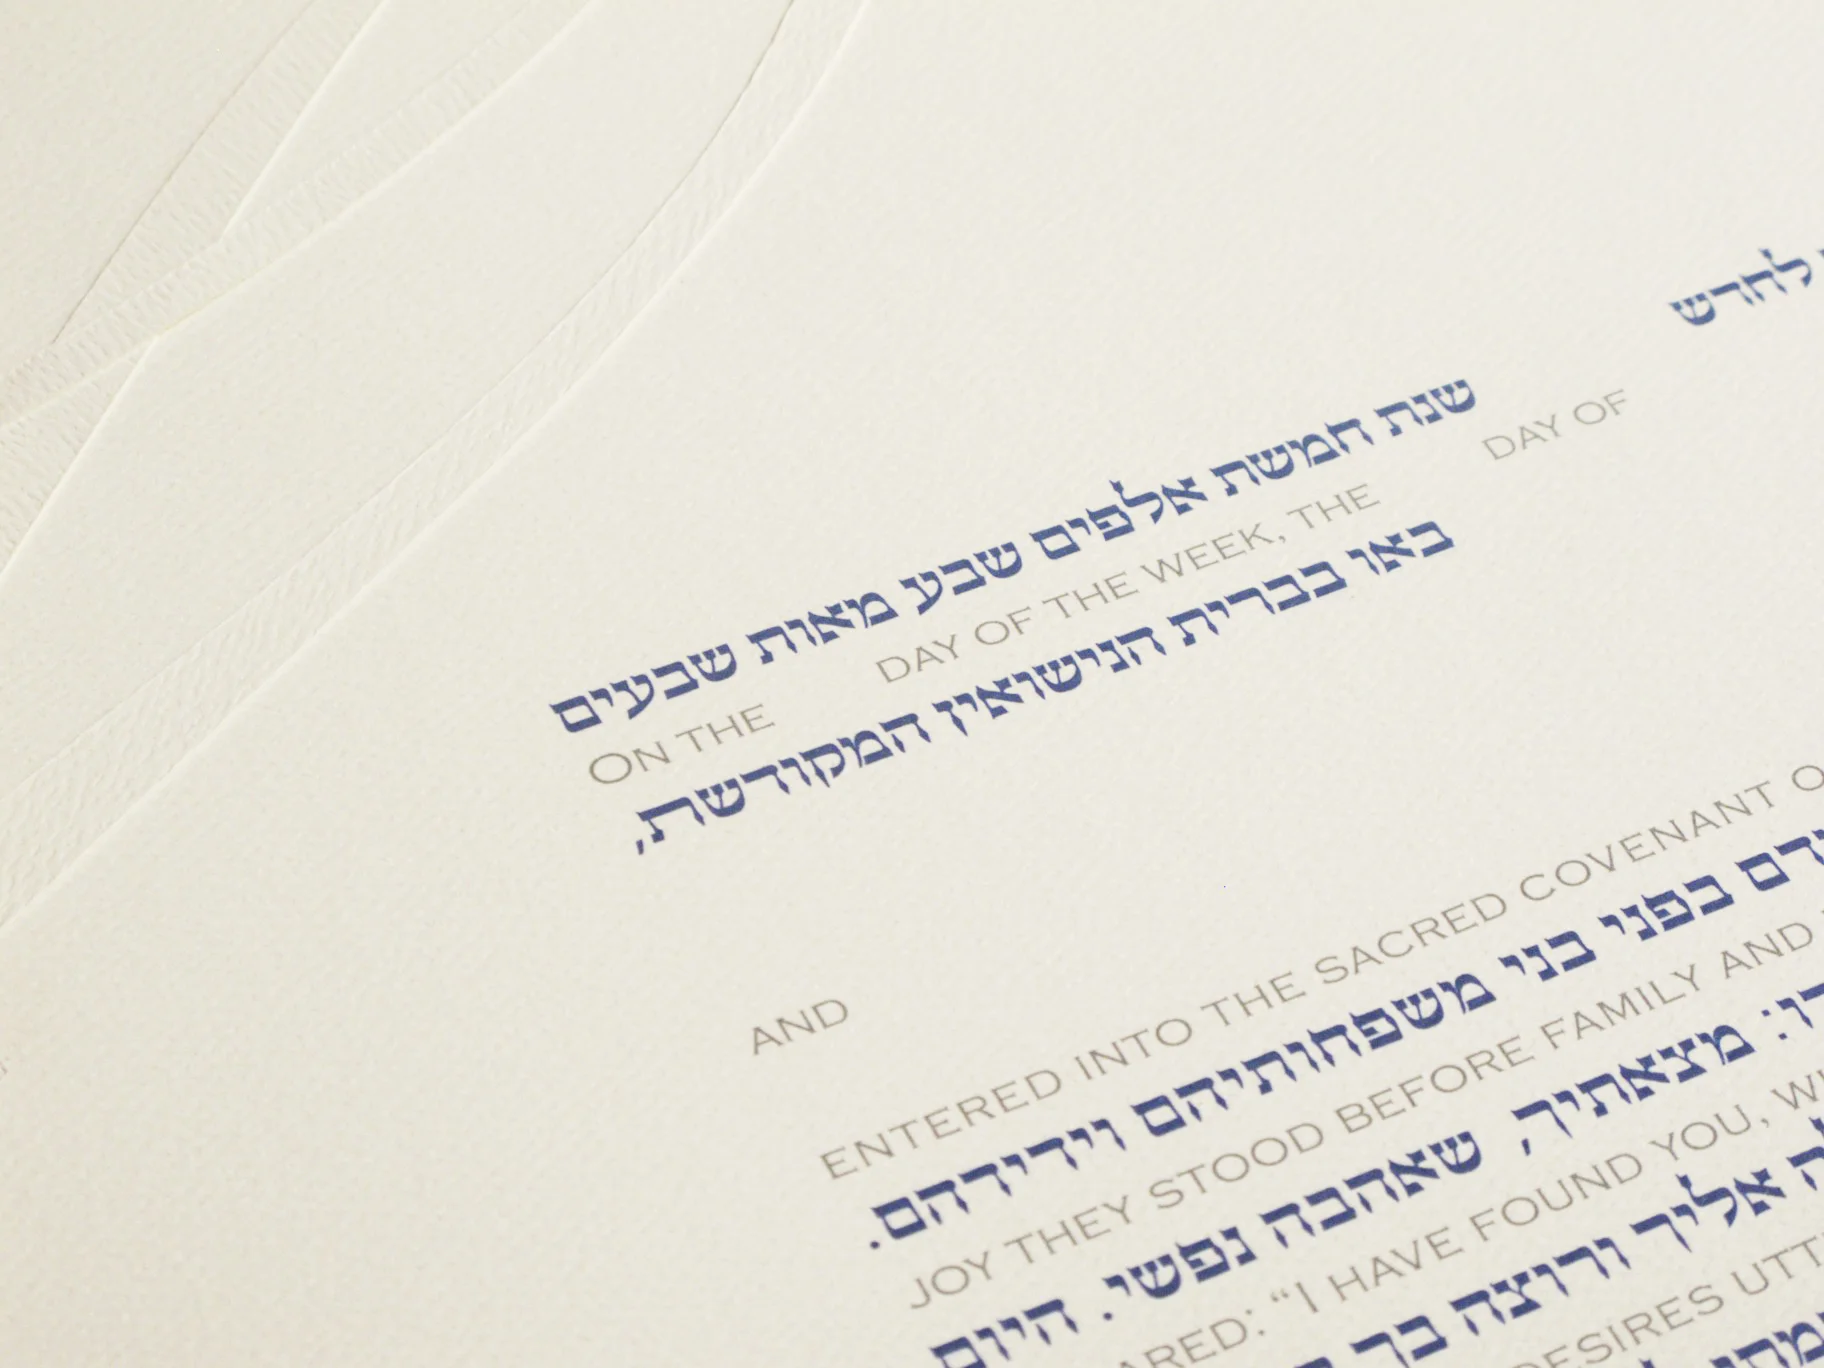 לחדש
שנת חמשת אלפים שבע מאות שבעים
ON THE DAY OF THE WEEK, THE DAY OF
באו בברית הנישואין המקודשת,
AND
ENTERED INTO THE SACRED COVENANT
בפני בני משפחותיהם וידידהם.
JOY THEY STOOD BEFORE FAMILY AND
מצאתיך, שאהבה נפשי. היום
"I HAVE FOUND YOU,
אליך ורוצה בך
DESIRES